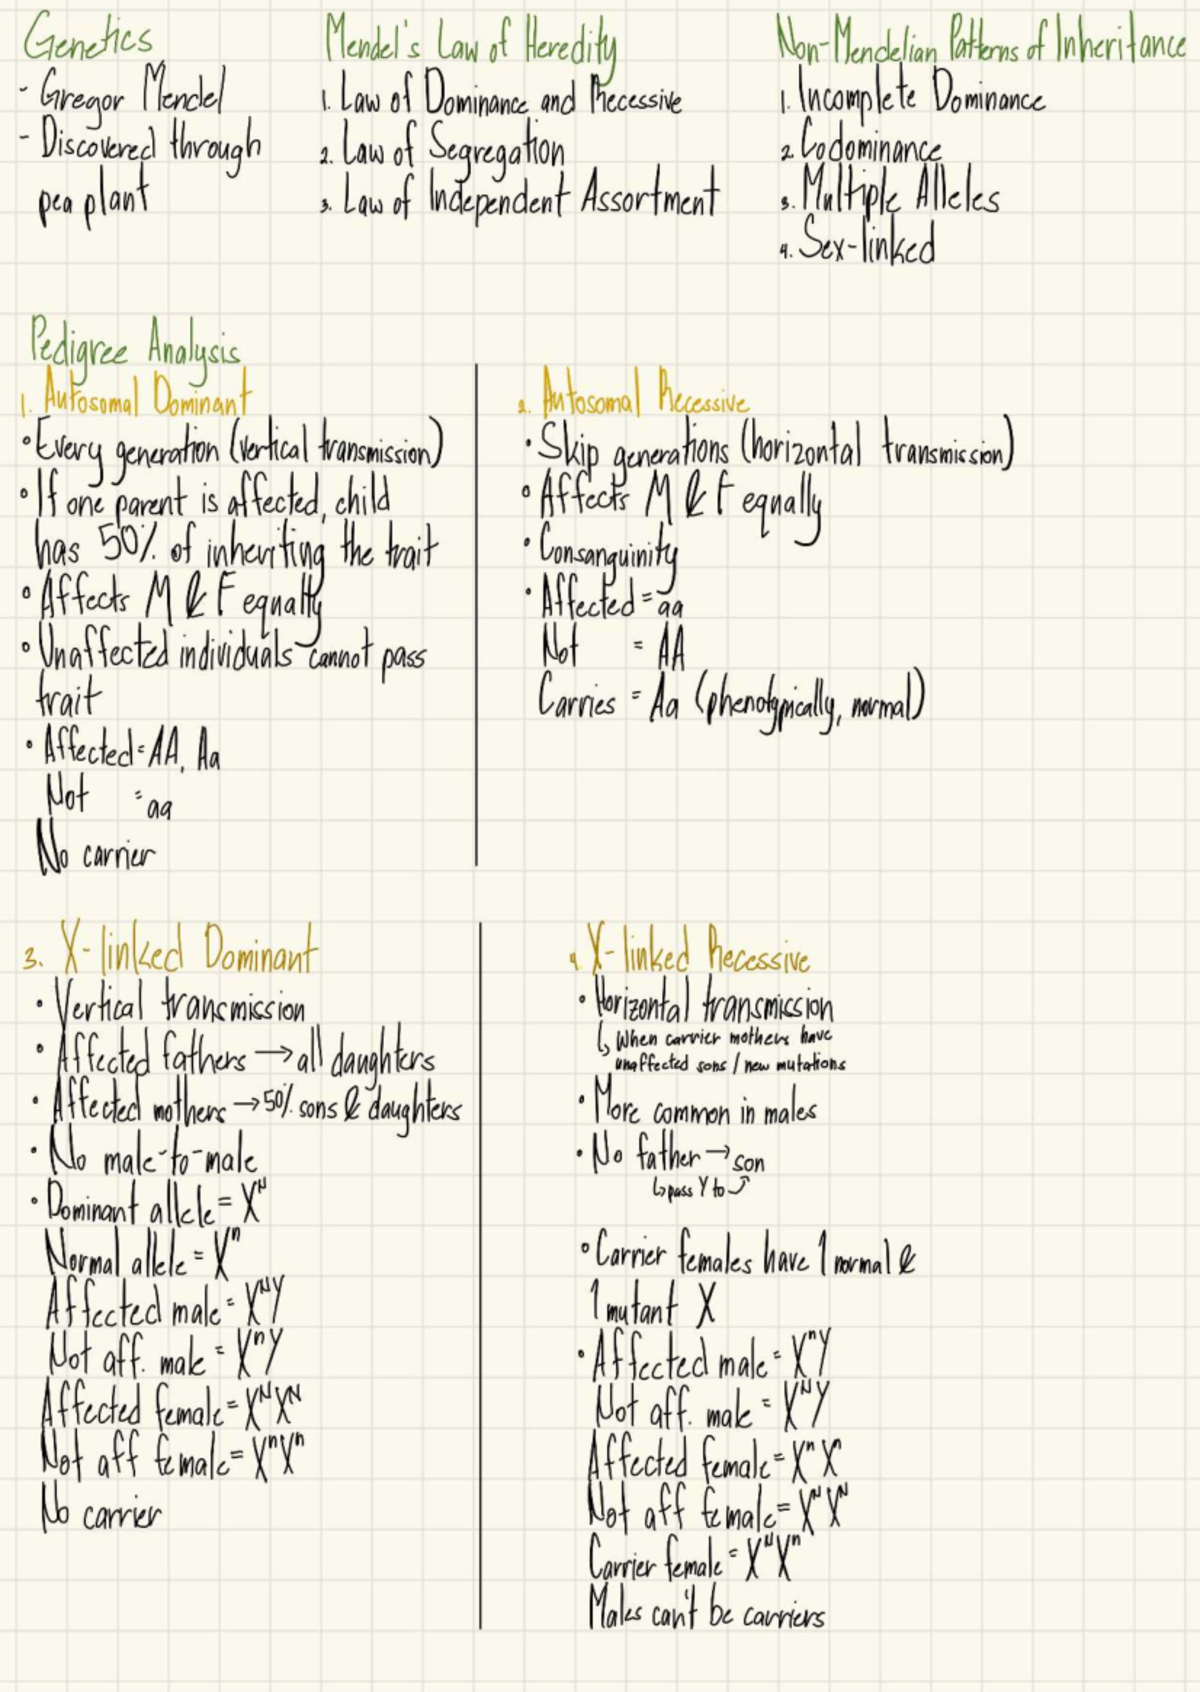 Genetics
- Gregor Mendel
- Discovered through
pea plant
Mendel's Law of Heredity
1. Law of Dominance and Recessive
2. Law of Segregation
3. Law of Independent Assortment
Non-Mendelian Patterns of Inheritance
1. Incomplete Dominance
2. Codominance
3. Multiple Alleles
4. Sex-linked
Pedigree Analysis
1. Autosomal Dominant
• Every generation (vertical transmission)
• If one parent is affected, child
has 50% of inheriting the trait
• Affects M & F equally
• Unaffected individuals cannot pass
trait
• Affected = AA, Aa
Not = aa
No carrier
2. Autosomal Recessive
• Skip generations (horizontal transmission)
• Affects M & F equally
• Consanguinity
• Affected = aa
Not = AA
Carries = Aa (phenotypically, normal)
3. X-linked Dominant
• Vertical transmission
• Affected fathers → all daughters
• Affected mothers → 50% sons & daughters
• No male-to-male
• Dominant allele = Xᴺ
Normal allele = Xⁿ
Affected male = XᴺY
Not aff. male = XⁿY
Affected female = XᴺXᴺ
Not aff female = XⁿXⁿ
No carrier
4. X-linked Recessive
• Horizontal transmission
↳ When carrier mothers have
unaffected sons / new mutations
• More common in males
• No father → son
↳ pass Y to ⤴
• Carrier females have 1 normal &
1 mutant X
• Affected male = XⁿY
Not aff. male = XᴺY
Affected female = XⁿXⁿ
Not aff female = XᴺXᴺ
Carrier female = XᴺXⁿ
Males can't be carriers